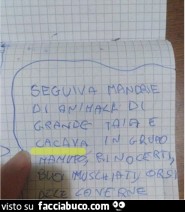 SEGUIVA MANDRIE
DI ANIMALI DI
GRANDE TAGLIA E
CACAVA IN GRUPO
MAMUT, RINOCERTI,
BUOI MUSCHIATI, ORSI
DELLE CAVERNE
visto su facciabuco.com